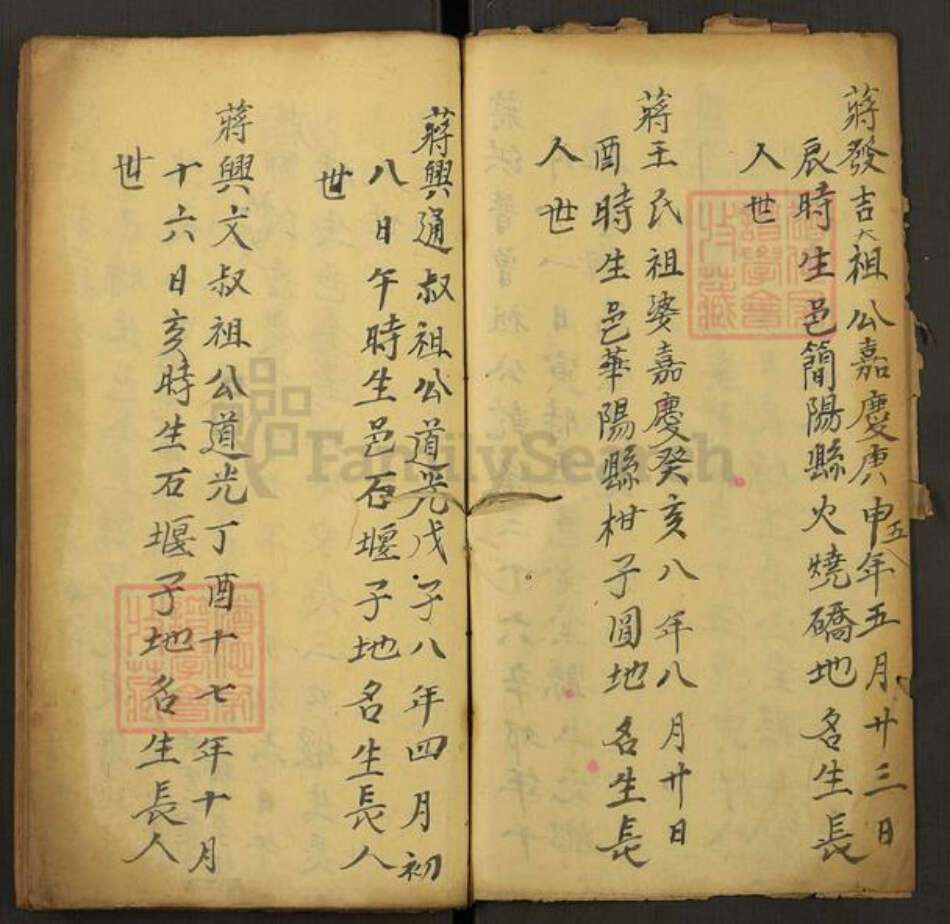 蔣發吉大祖公嘉慶庚申五年五月廿三日
辰時生邑簡陽縣火燒礄地名生長
人世
蔣王氏祖婆嘉慶癸亥八年八月廿日
酉時生邑華陽縣柑子圓地名生長
人世
蔣興通叔祖公道光戊子八年四月初
八日午時生邑石堰子地名生長人
世
蔣興文叔祖公道光丁酉十七年十月
十六日亥時生石堰子地名生長人
世
FamilySearch